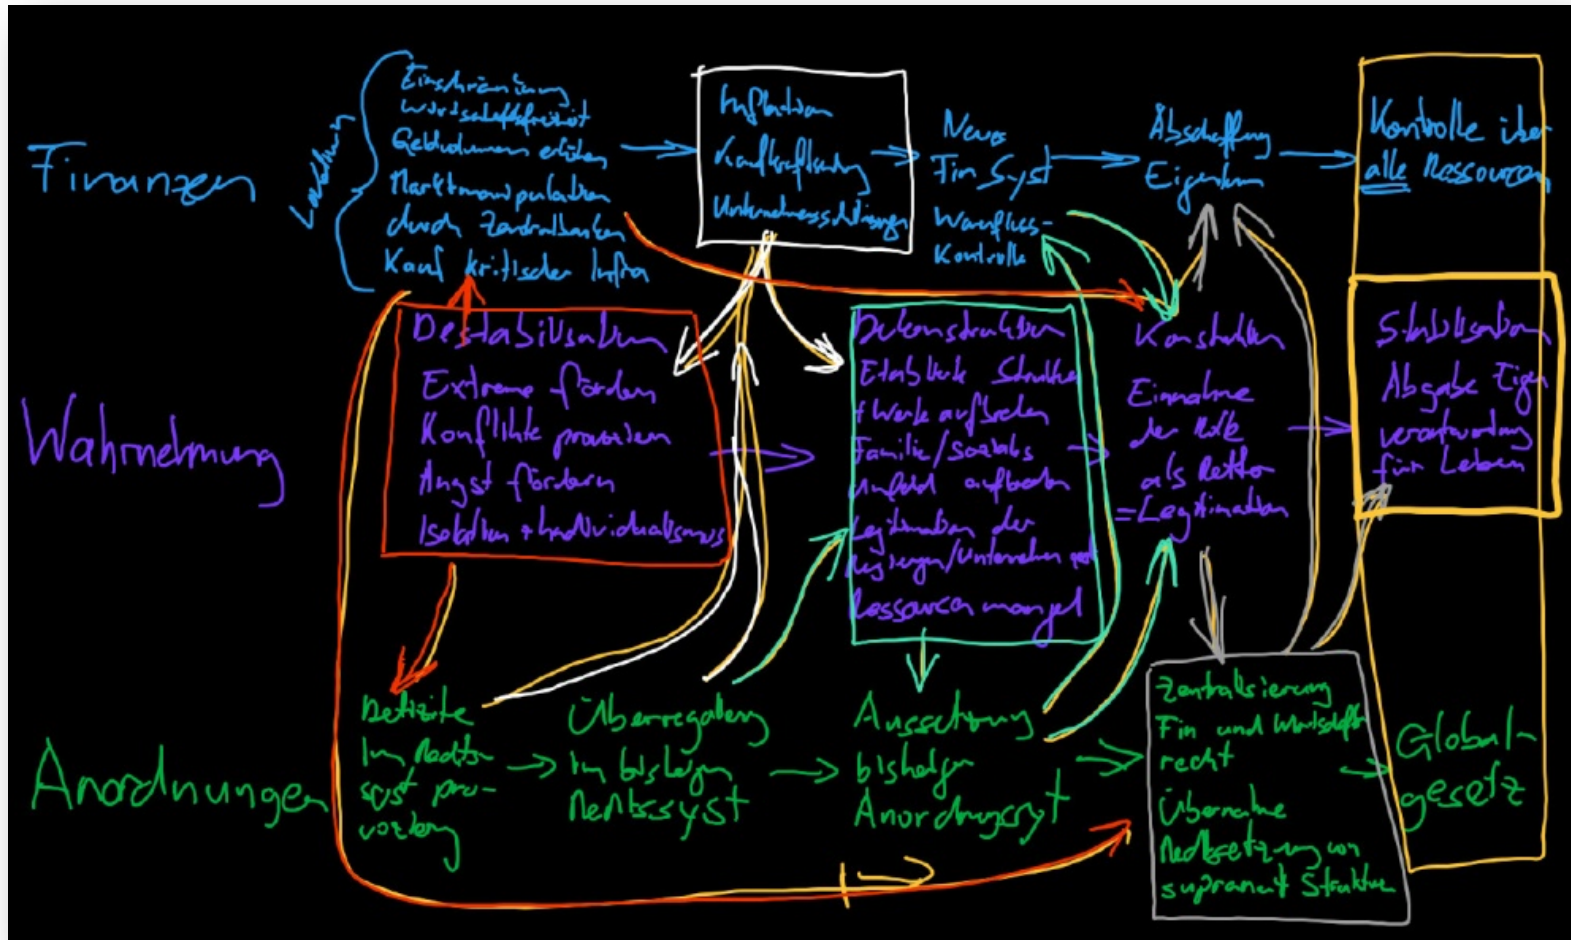 Finanzen
Einschränkung
Wirtschaftsfreiheit
Geldvolumen erhöhen
Marktmanipulation
durch Zentralbanken
Kauf kritischer Infra
Inflation
Kaufkraftsenkung
Unternehmensschließungen
Neues
Fin Syst
Warenfluss-
Kontrolle
Abschaffung
Eigentum
Kontrolle über
alle Ressourcen
Wahrnehmung
Destabilisation
Extreme fördern
Konflikte provozieren
Angst fördern
Isolation + Individualismus
Dekonstruktion
Etablierte Struktur
+ Werte aufbrechen
Familie/Soziales
Umfeld aufbrechen
Legitimation der
Regierungen/Unternehmen
Ressourcenmangel
Konstruktion
Einnahme
der Rolle
als Retter
= Legitimation
Stabilisation
Abgabe Eigen
verantwortung
für Leben
Anordnungen
Defizite
im Rechts-
syst pro-
vozieren
Überregulierung
im bisherigen
Rechtssyst
Aussetzung
bisheriger
Anordnungssyst
Zentralisierung
Fin und Wirtschafts
recht
Übernahme
Rechtsetzung von
supranat Strukturen
Global-
gesetz